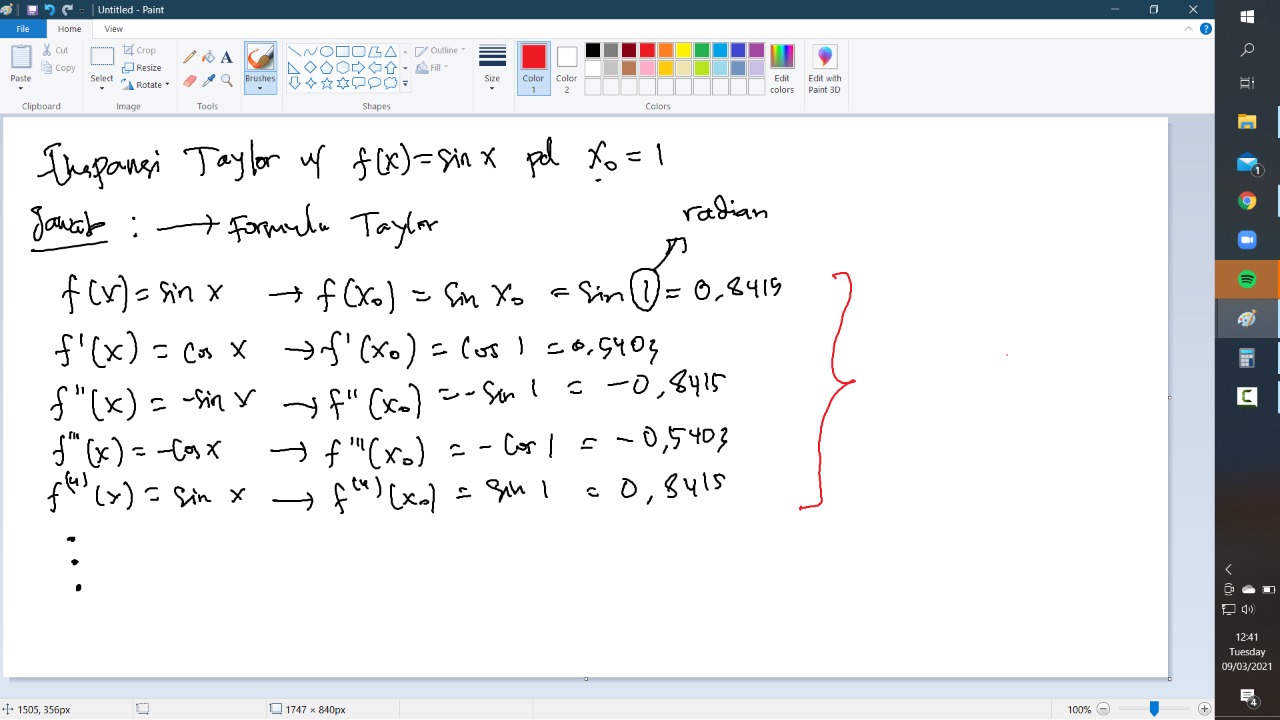 Untitled - Paint
File Home View
Paste
Cut
Copy
Clipboard
Select
Crop
Resize
Rotate
Image
Tools
Brushes
Shapes
Outline
Fill
Size
Color 1
Color 2
Edit colors
Colors
Edit with Paint 3D
Ekspansi Taylor u/ f(x) = sin x pd x₀ = 1
Jawab : → Formula Taylor
radian
f(x) = sin x → f(x₀) = sin x₀ = sin 1 = 0,8415
f'(x) = cos x → f'(x₀) = cos 1 = 0,5403
f''(x) = -sin x → f''(x₀) = -sin 1 = -0,8415
f'''(x) = -cos x → f'''(x₀) = -cos 1 = -0,5403
f⁽⁴⁾(x) = sin x → f⁽⁴⁾(x₀) = sin 1 = 0,8415
1505, 356px
1747 × 840px
100%
12:41
Tuesday
09/03/2021
1
4